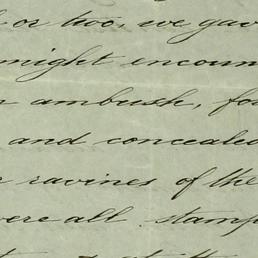 or two, we gav
might encoun
ambush, fo
and concealed
ravines of the
were all stamp